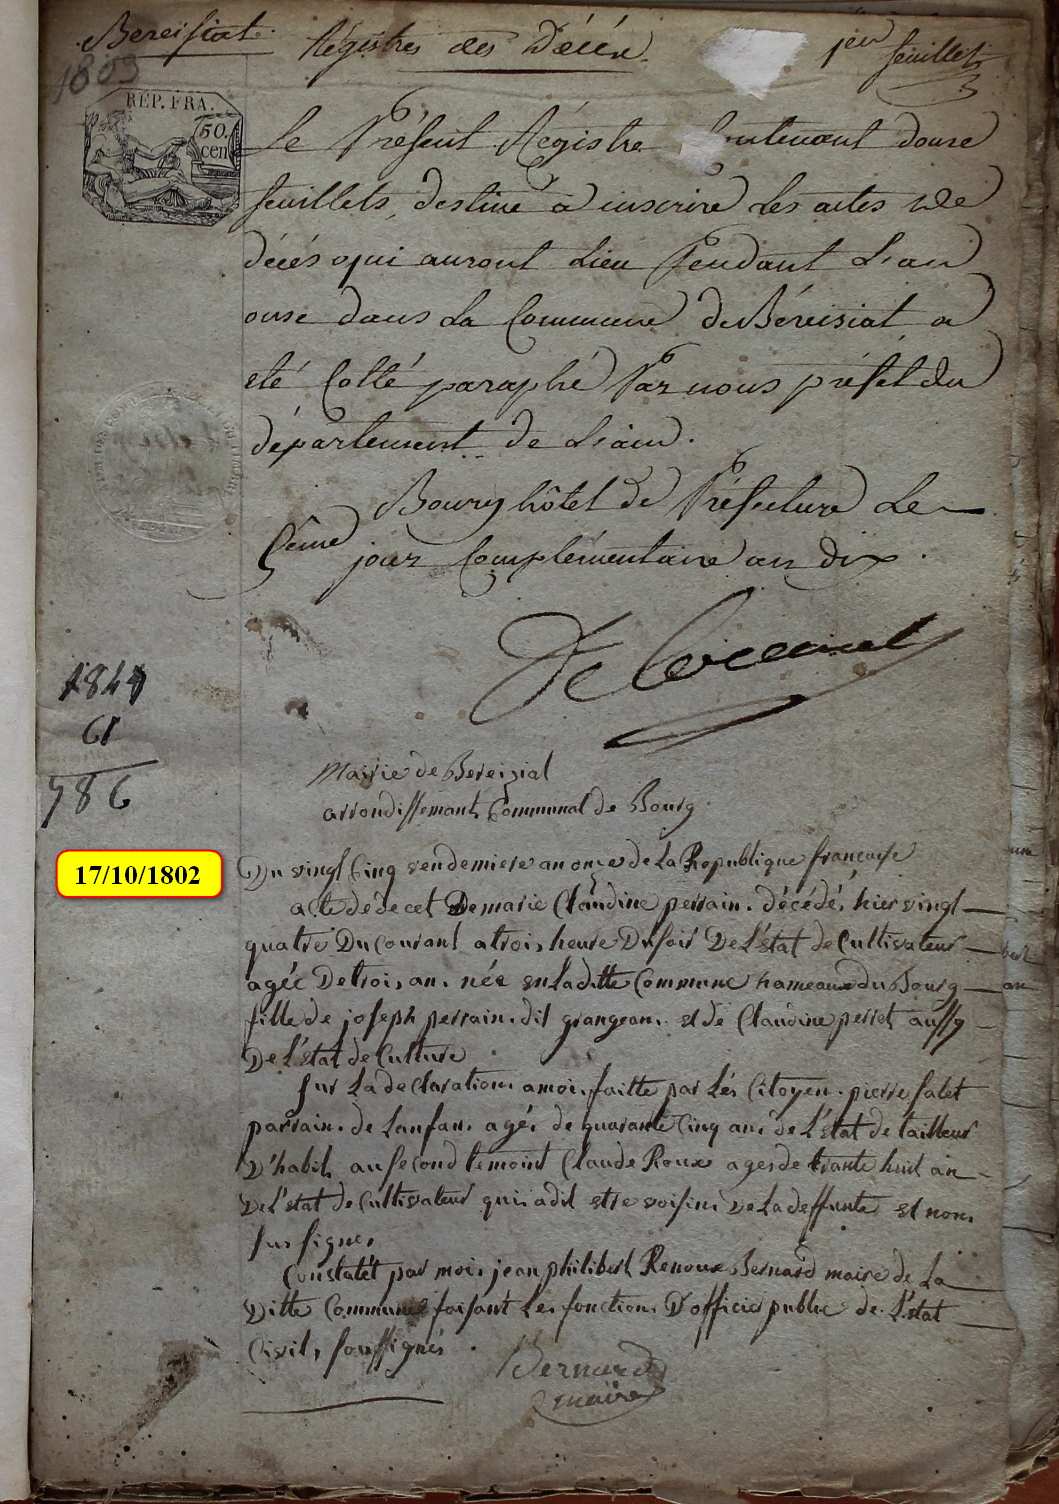 Bereisiat. Régistres des Décés 1er feuillet
1803
RÉP. FRA.
50.
cen
Le Présent Régistre Contenant douze
feuillets, destiné à inscrire Les actes de
décés qui auront Lieu Pendant L'an
onze dans La Commune de Béreisiat a
eté Cotté paraphé Par nous préfet du
département de L'ain.
Bourg hôtel de Préfecture Le
5ème jour Complémentaire an dix.
1844
61
786
Mairie de Bereizial
arrondissement Communal de Bourg
17/10/1802
Du vingt Cinq vendemiere an onze de La Republique francaise
acte de decet De marie Claudine perrain. décédé, hier vingt
quatre Du courant a trois heure Du soir De L'état de Cultivateur
agée De trois an. née en La ditte Commune hameaux du Bourg
fille de joseph perrain. dit grangean. et de Claudine perret aussy
De L'état de Culture
sur La declaration a moi faitte par Lés Citoyen. pierre falet
parrain. de Lanfan. agé. de quarante Cinq an. de L'état de tailleur
D'habit au second temoint Claude Roux ages de trante huit an
De L'état de Cultivateur qui a dit etre voisin. de La deffunte et non.
sus signe,
Constatét par moi. jean philibert Renoux Bernard maire de La
Ditte Commune faisant Les fonction. D'officie public de L'état
Civil, soussignés.
Bernard
maire